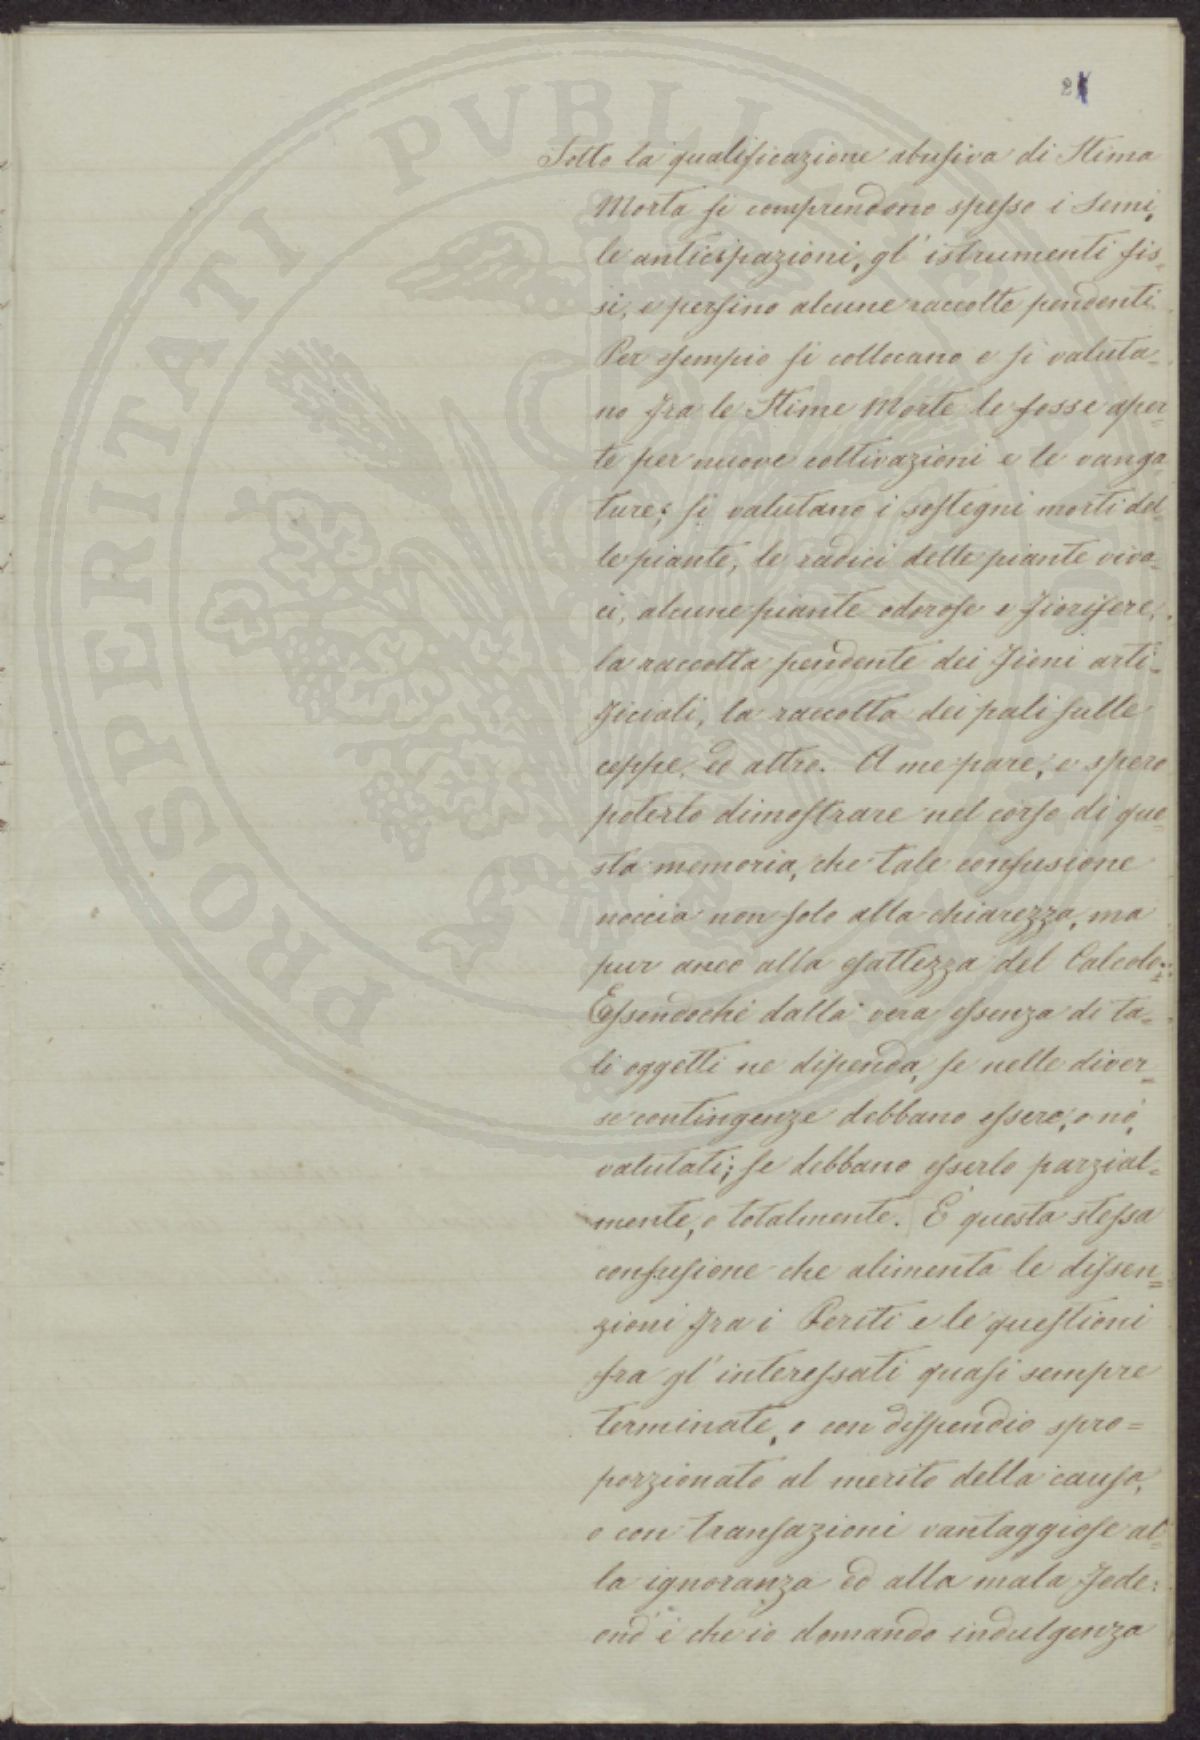 2
Sotto la qualificazione abusiva di Stima
Morta si comprendono spesso i Semi,
le anticipazioni, gl' istrumenti fis-
si, e persino alcune raccolte pendenti.
Per esempio si collocano e si valuta-
no fra le Stime Morte le fosse aper-
te per nuove coltivazioni e le vanga-
ture; si valutano i sostegni morti del-
le piante, le radici delle piante viva-
ci, alcune piante odorose e fiorifere,
la raccolta pendente dei fieni arti-
ficiali, la raccolta dei pali sulle
ceppe, ed altro. A me pare, e spero
poterlo dimostrare nel corso di que-
sta memoria, che tale confusione
noccia non solo alla chiarezza, ma
pur anco alla esattezza del Calcolo:
Essendochè dalla vera essenza di ta-
li oggetti ne dipenda, se nelle diver-
se contingenze debbano essere, o nò,
valutati; se debbano esserlo parzial-
mente, o totalmente. È questa stessa
confusione che alimenta le dissen-
zioni fra i Periti e le questioni
fra gl' interessati quasi sempre
terminate, o con dispendio spro-
porzionato al merito della causa,
o con transazioni vantaggiose al-
la ignoranza ed alla mala fede:
ond' è che io domando indulgenza
PROSPERITATI PVBLICAE